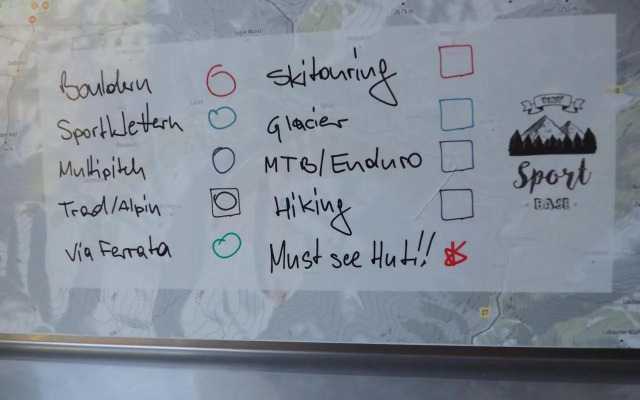 Bouldern
Sportklettern
Multipitch
Trad/Alpin
Via Ferrata
Skitouring
Glacier
MTB/Enduro
Hiking
Must see Hut!!
Sport
BASE
27